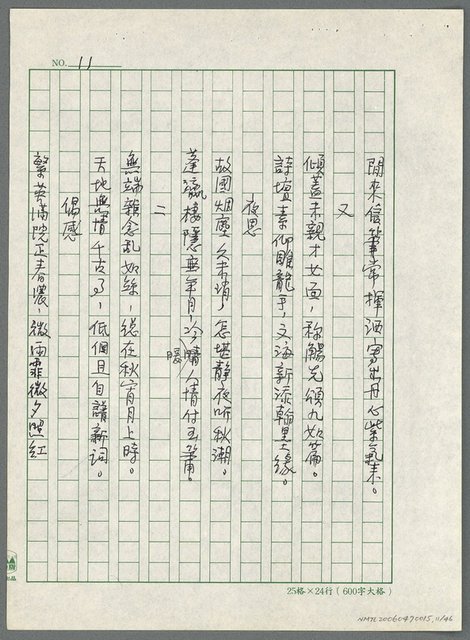 NO. 11
閒來信筆常揮洒寫出丹心紫氣來。
又
傾蓋未親才女面，稱觴先頌九如篇。
詩壇素仰雕龍手，文海新添翰墨緣。
夜思
故國烟塵久未消，怎堪靜夜听秋潮。
蓬瀛棲隱無年月，冷暖人情付玉簫。
二
無端雜念亂如絲，總在秋宵月上時。
天地無情千古了，低個且自譜新詞。
偶感
繁英滿院正春濃，微雨霏微夕照紅
25格×24行（600字大格）
NMTL20060470015, 11/46